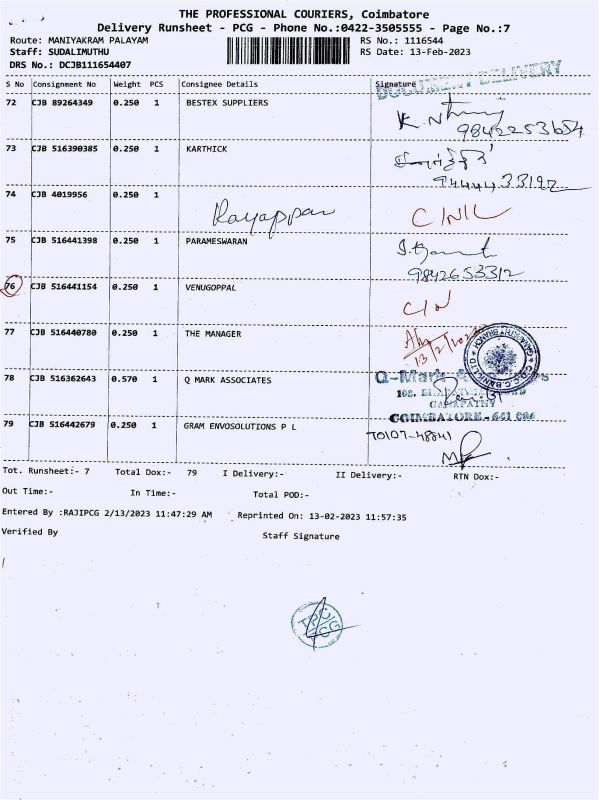 THE PROFESSIONAL COURIERS, Coimbatore
Delivery Runsheet - PCG - Phone No.:0422-3505555 - Page No.:7
Route: MANIYAKRAM PALAYAM RS No.: 1116544
Staff: SUDALIMUTHU RS Date: 13-Feb-2023
DRS No.: DCJB111654407
S No Consignment No Weight PCS Consignee Details Signature
DOCUMENT DELIVERY
72 CJB 89264349 0.250 1 BESTEX SUPPLIERS
9842253654
73 CJB 516390385 0.250 1 KARTHICK
9444433192
74 CJB 4019956 0.250 1
Rayappan
75 CJB 516441398 0.250 1 PARAMESWARAN
9842653312
76 CJB 516441154 0.250 1 VENUGOPPAL
77 CJB 516440780 0.250 1 THE MANAGER
78 CJB 516362643 0.570 1 Q MARK ASSOCIATES
GANAPATHY
COIMBATORE - 641 006
79 CJB 516442679 0.250 1 GRAM ENVOSOLUTIONS P L
Tot. Runsheet:- 7 Total Dox:- 79 I Delivery:- II Delivery:- RTN Dox:-
Out Time:- In Time:- Total POD:-
Entered By :RAJIPCG 2/13/2023 11:47:29 AM Reprinted On: 13-02-2023 11:57:35
Verified By Staff Signature